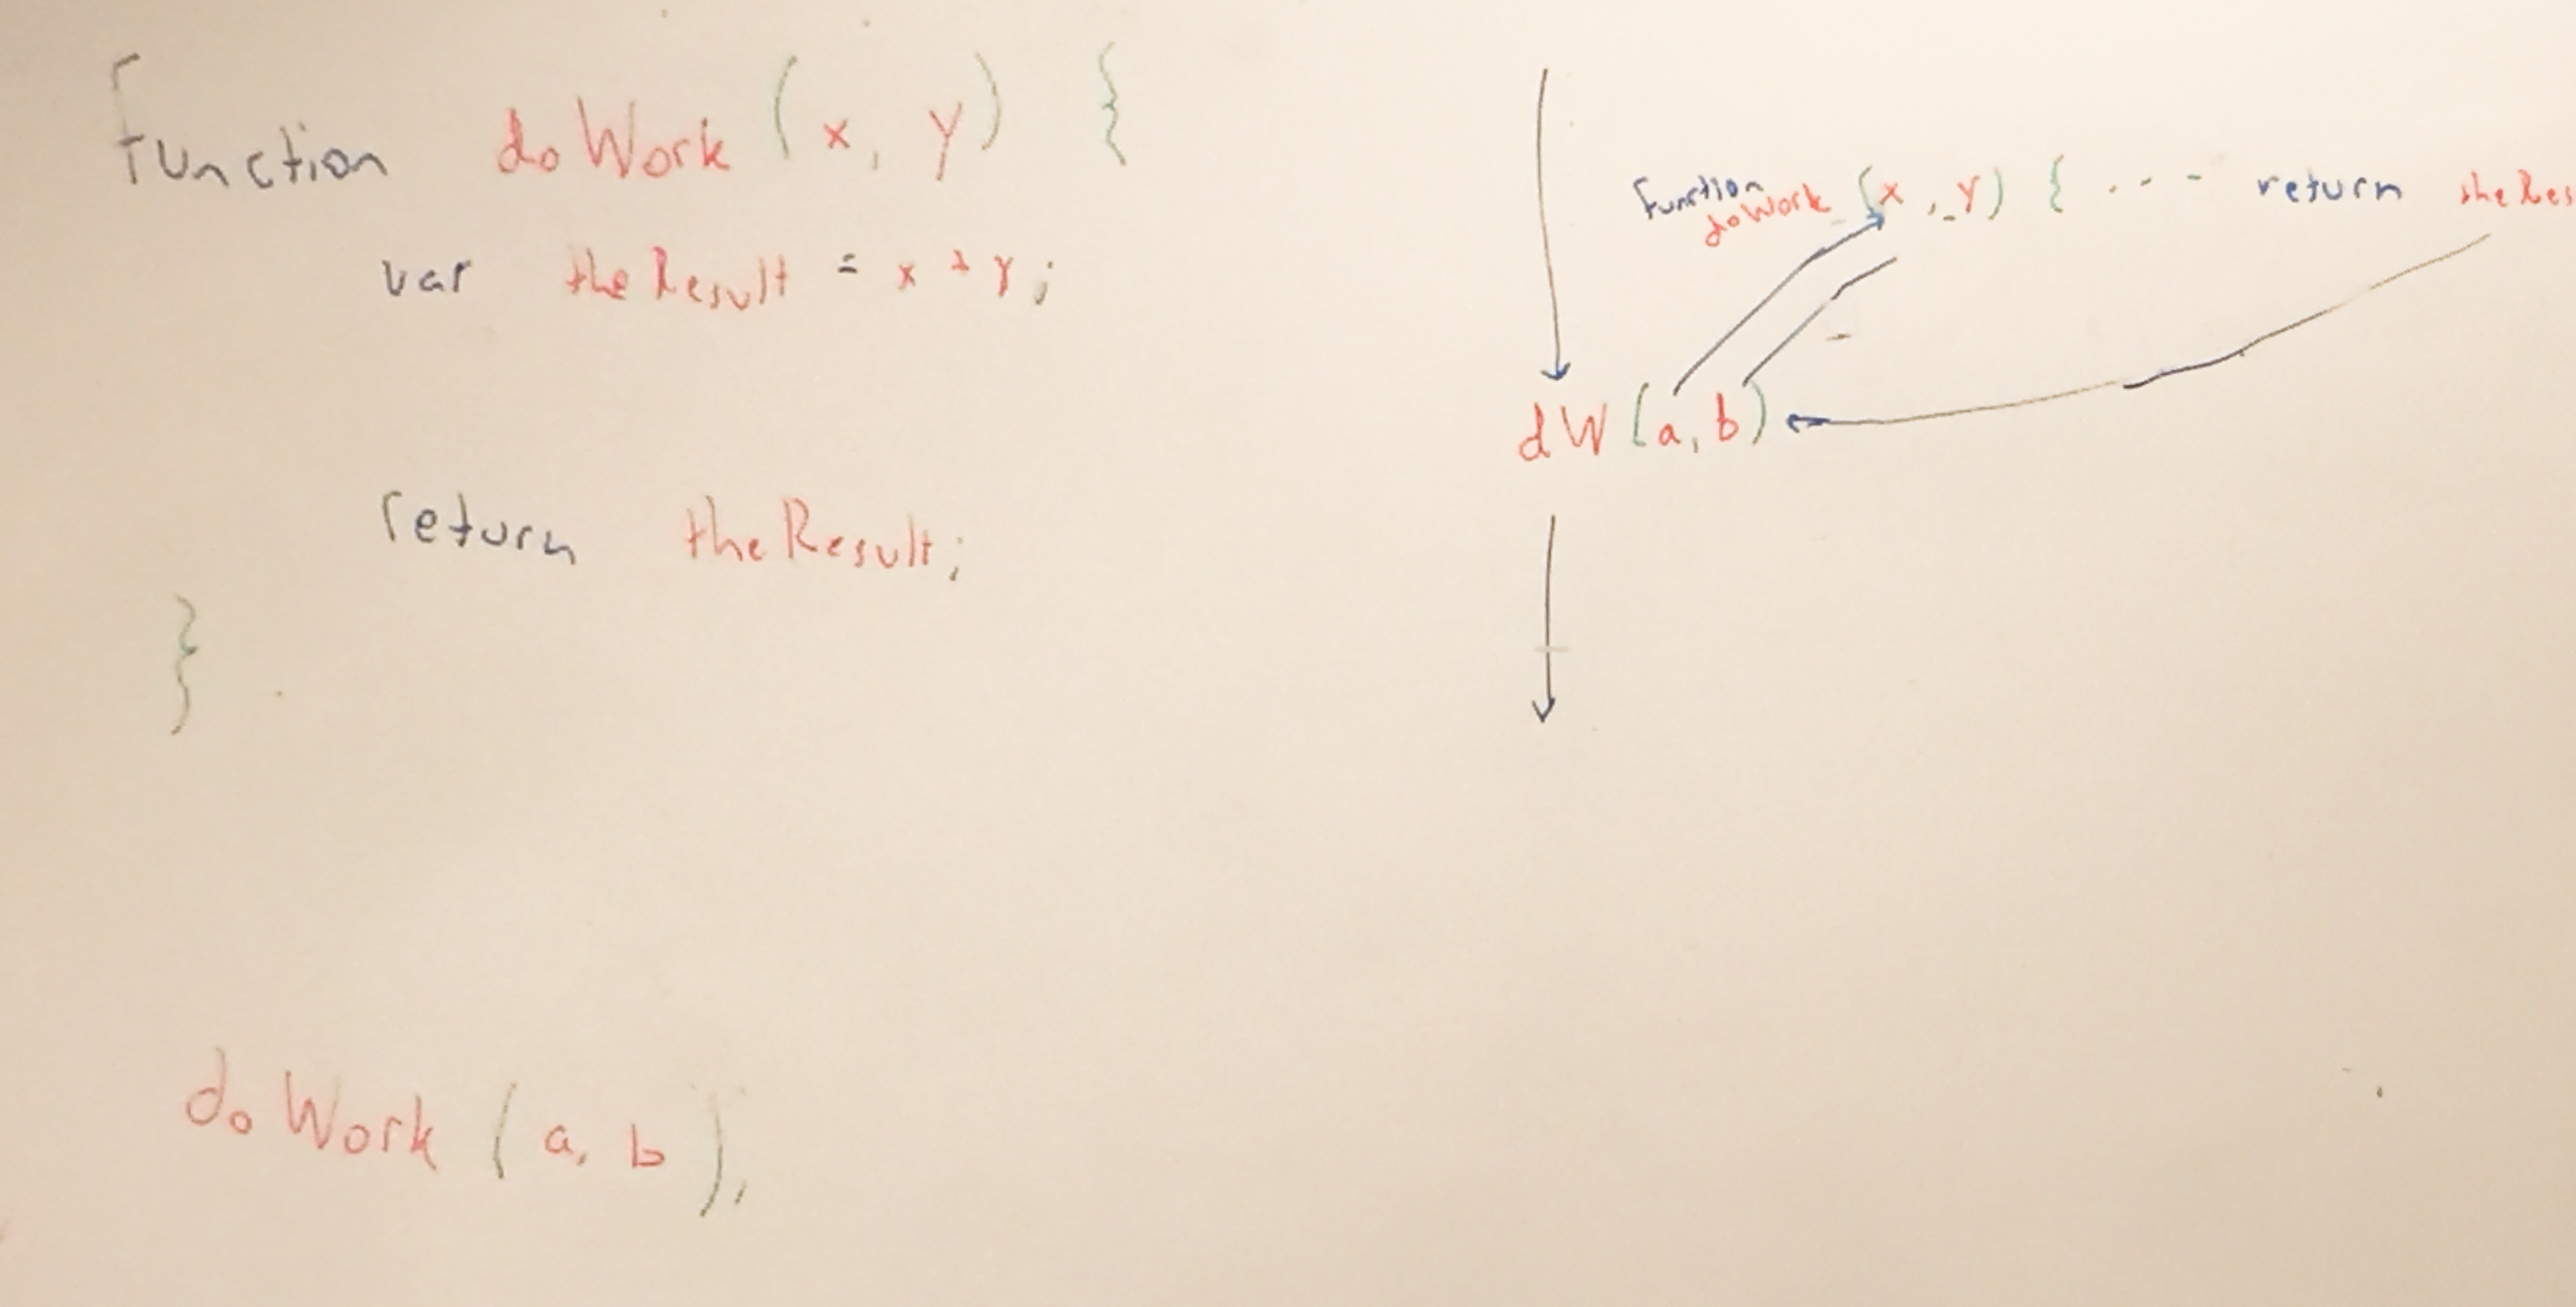 function doWork (x, y) {
var theResult = x + y;
return theResult;
}
doWork (a, b);
function doWork (x, y) { ... return theRes
dW (a, b)